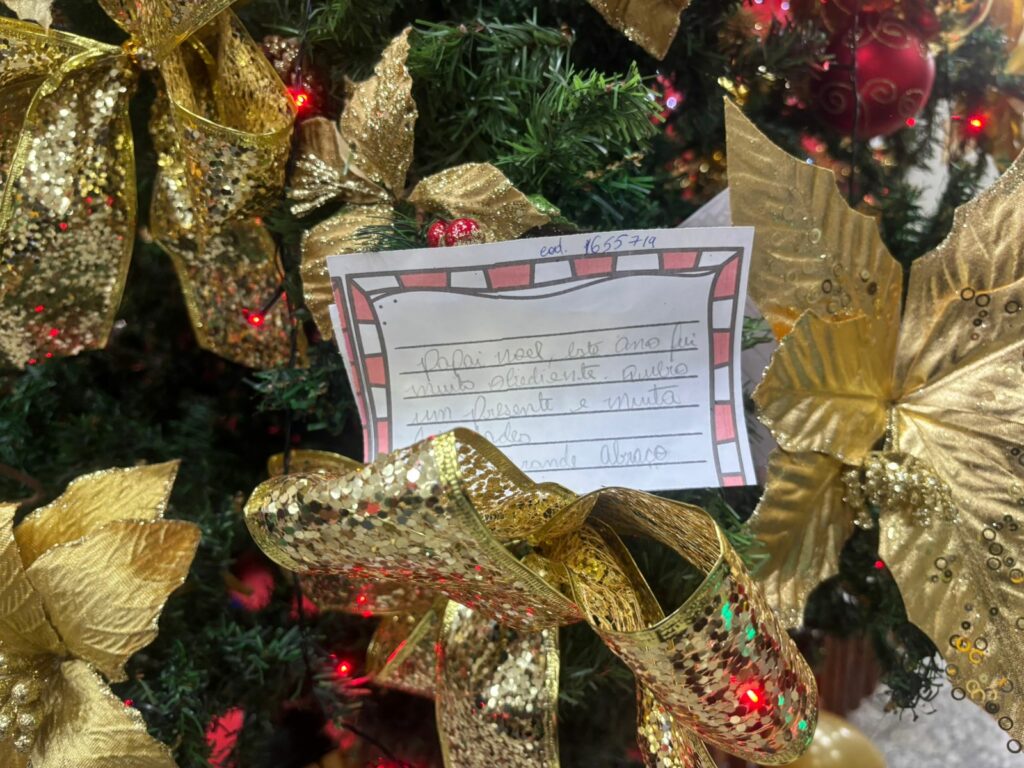 cod. 1655719
Papai noel, este ano fui
muito obediente. Quero
um presente e muita
rande abraço